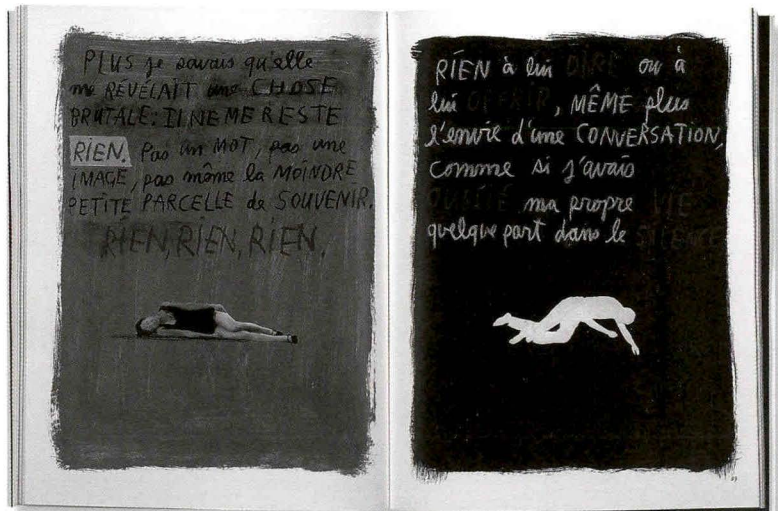 PLUS je savais qu'elle
me RÉVÉLAIT une CHOSE
BRUTALE: IL NE ME RESTE
RIEN. Pas un MOT, pas une
IMAGE, pas même la MOINDRE
PETITE PARCELLE de SOUVENIR.
RIEN, RIEN, RIEN.
RIEN à lui DIRE ou à
lui OFFRIR, MÊME plus
l'envie d'une CONVERSATION,
comme si j'avais
OUBLIÉ ma propre VIE
quelque part dans le SILENCE